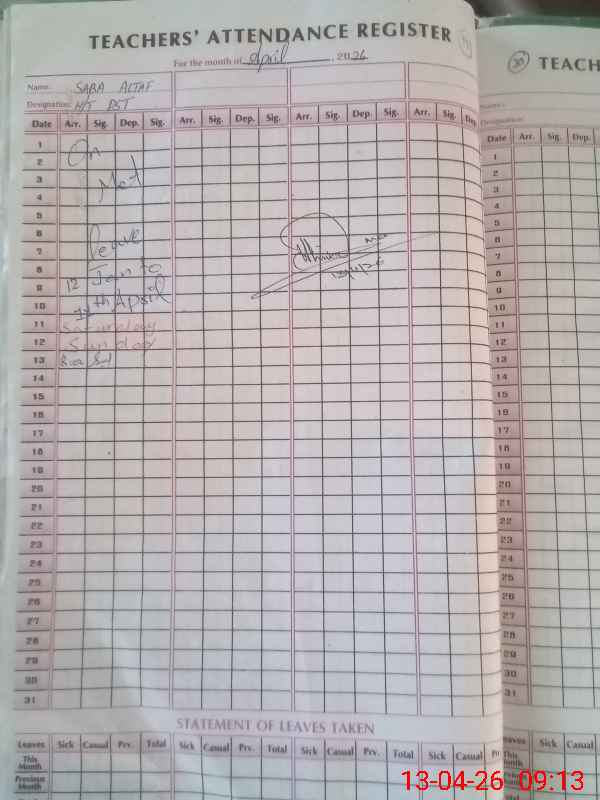 TEACHERS' ATTENDANCE REGISTER
For the month of April, 2026
Name: SABA ALTAF
Designation: H/T PST
Date Arr. Sig. Dep. Sig. Arr. Sig. Dep. Sig. Arr. Sig. Dep. Sig. Arr. Sig. Dep.
1 On
2
3 Mat
4
5
6 leave
7
8 12 Jan to
9
10 th April
11 Saturday
12 Sunday
13
14
15
16
17
18
19
20
21
22
23
24
25
26
27
28
29
30
31
STATEMENT OF LEAVES TAKEN
Leaves Sick Casual Prv. Total Sick Casual Prv. Total Sick Casual Prv. Total Sick Casual
This Month
Previous Month
TEACH
Name:
Designation:
Date Arr. Sig. Dep.
1
2
3
4
5
6
7
8
9
10
11
12
13
14
15
16
17
18
19
20
21
22
23
24
25
26
27
28
29
30
31
Leaves Sick Casual
This Month
13-04-26 09:13